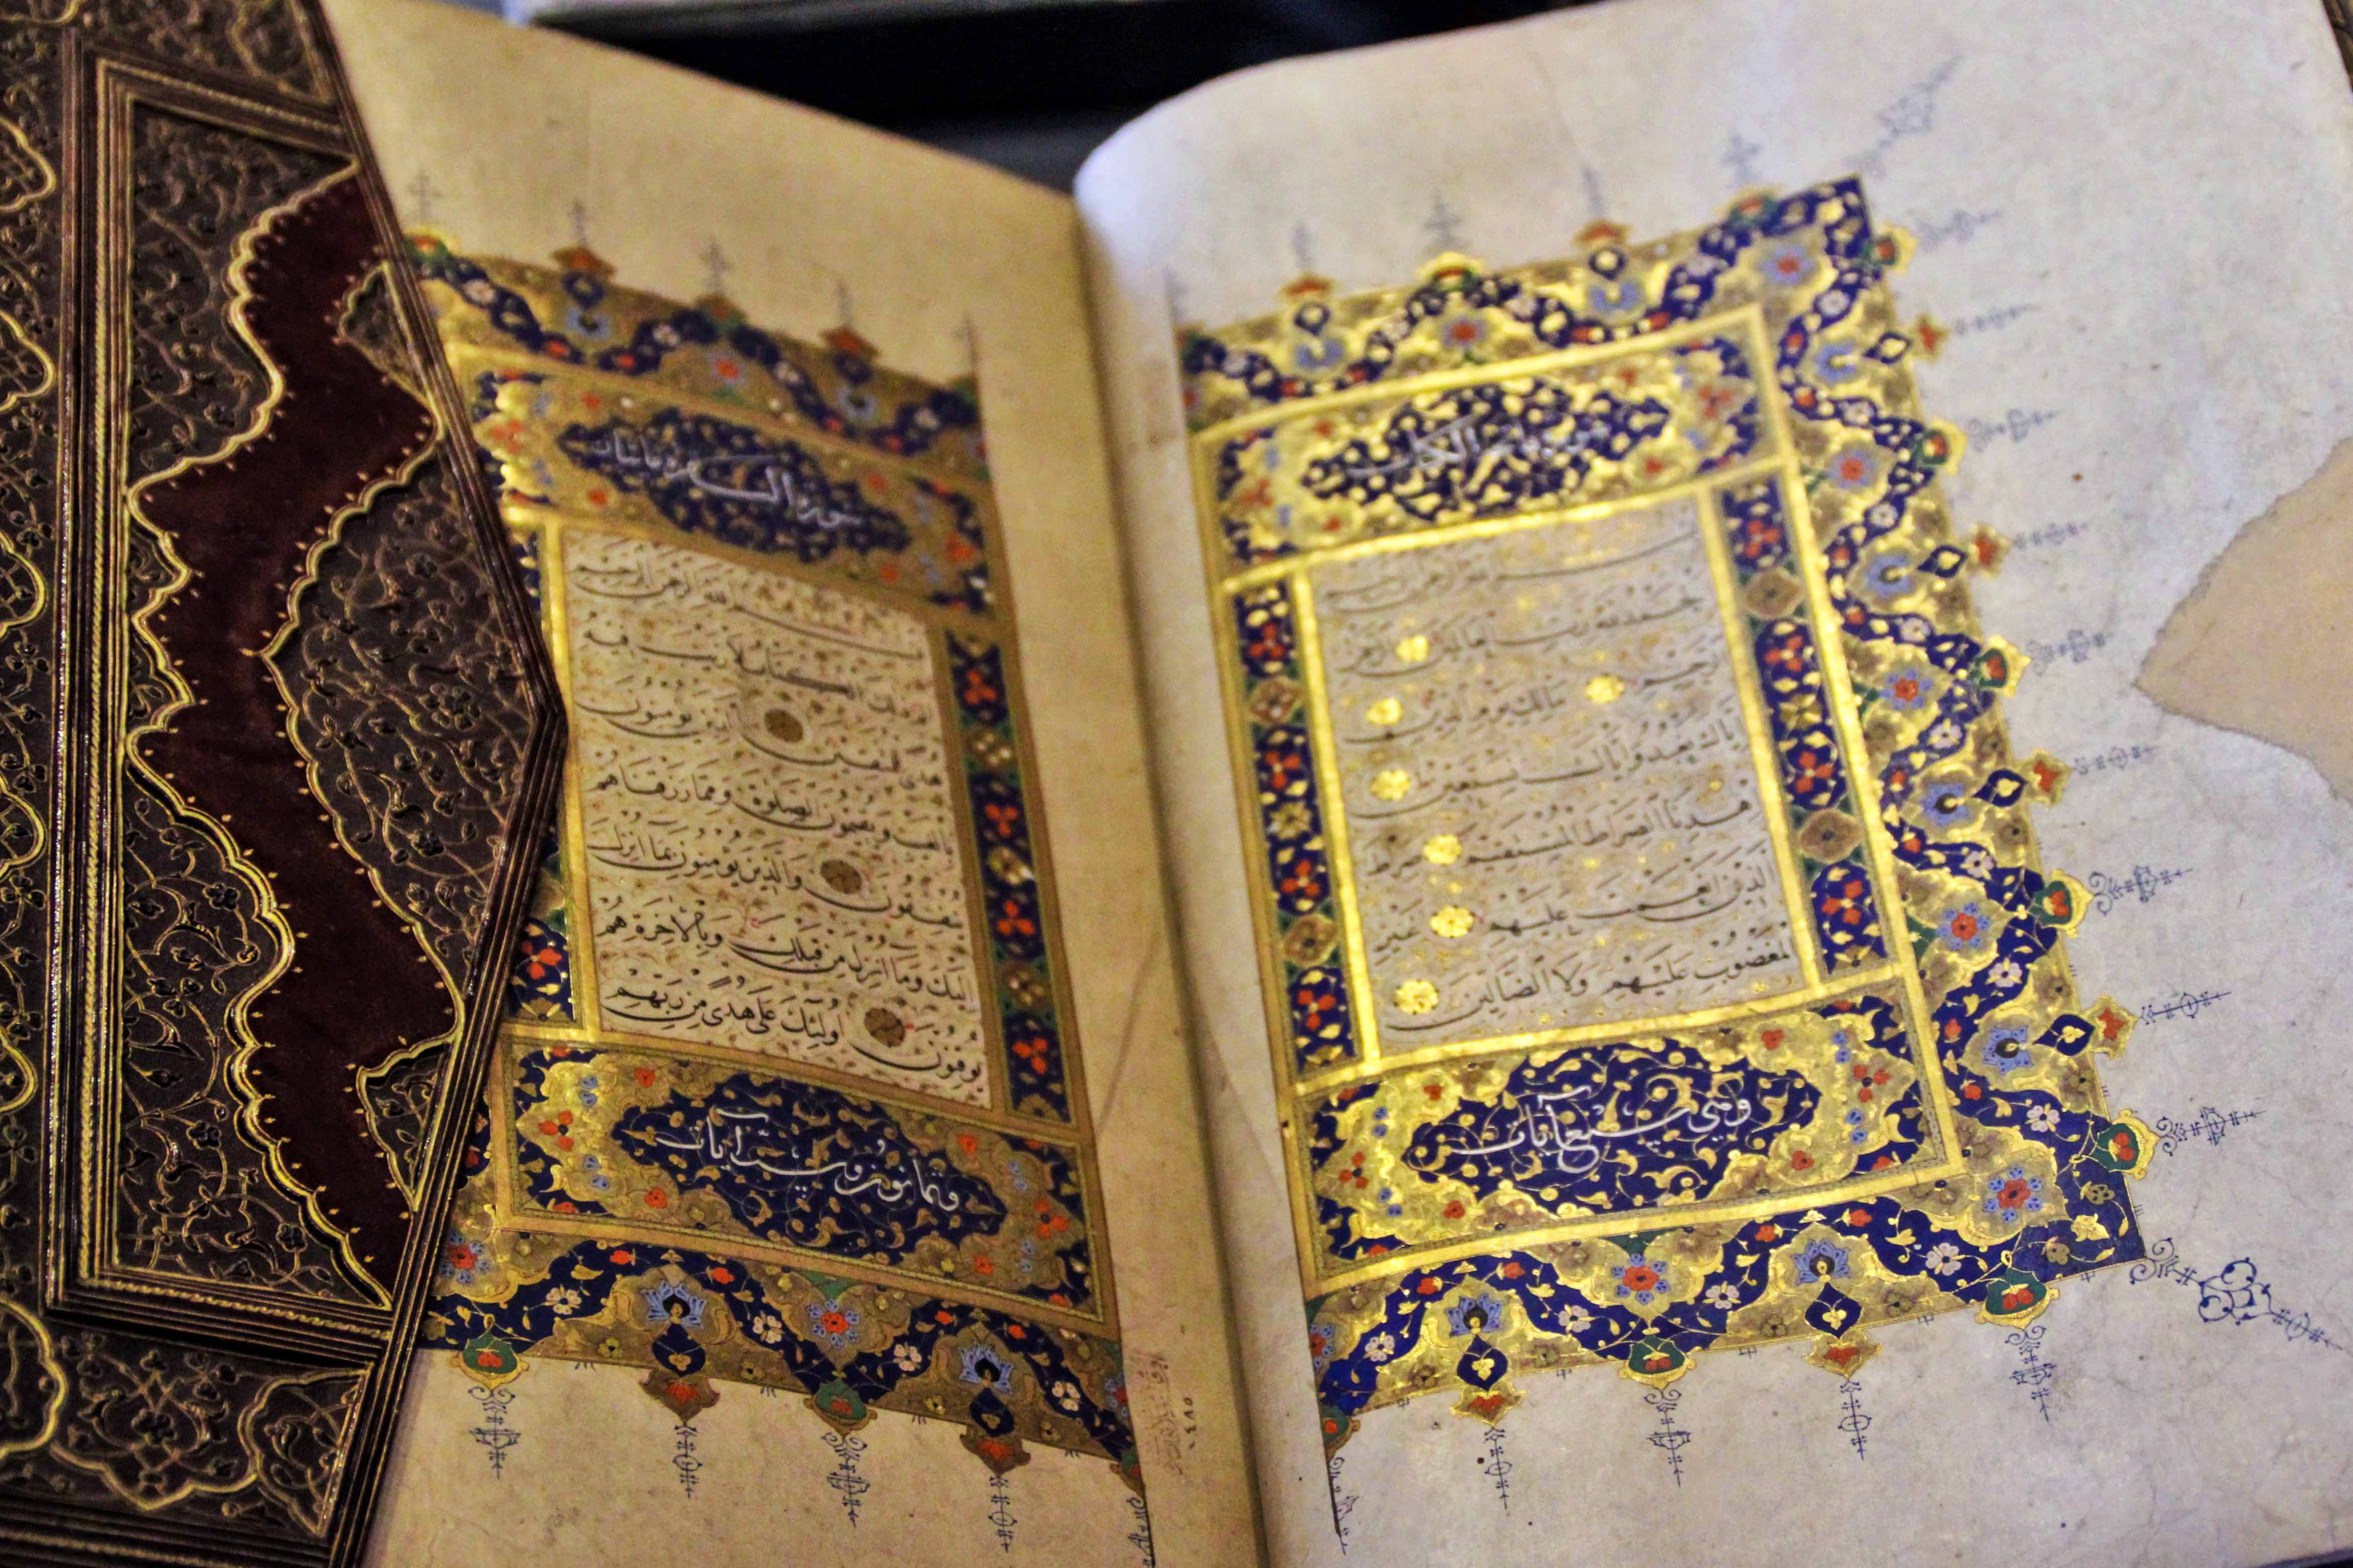 سورة فاتحة الكتاب
بسم الله الرحمن الرحيم
الحمد لله رب العالمين الرحمن
الرحيم مالك يوم الدين
اياك نعبد واياك نستعين
اهدنا الصراط المستقيم صراط
الذين انعمت عليهم غير
المغضوب عليهم ولا الضالين
وهي سبع آيات
سورة البقرة مائتان
بسم الله الرحمن الرحيم
الكتاب لا ريب فيه
هدى للمتقين الذين يؤمنون
بالغيب ويقيمون الصلوة ومما رزقناهم
ينفقون والذين يؤمنون بما انزل
اليك وما انزل من قبلك وبالاخرة هم
يوقنون اولئك على هدى من ربهم
وثمانون وست ايات